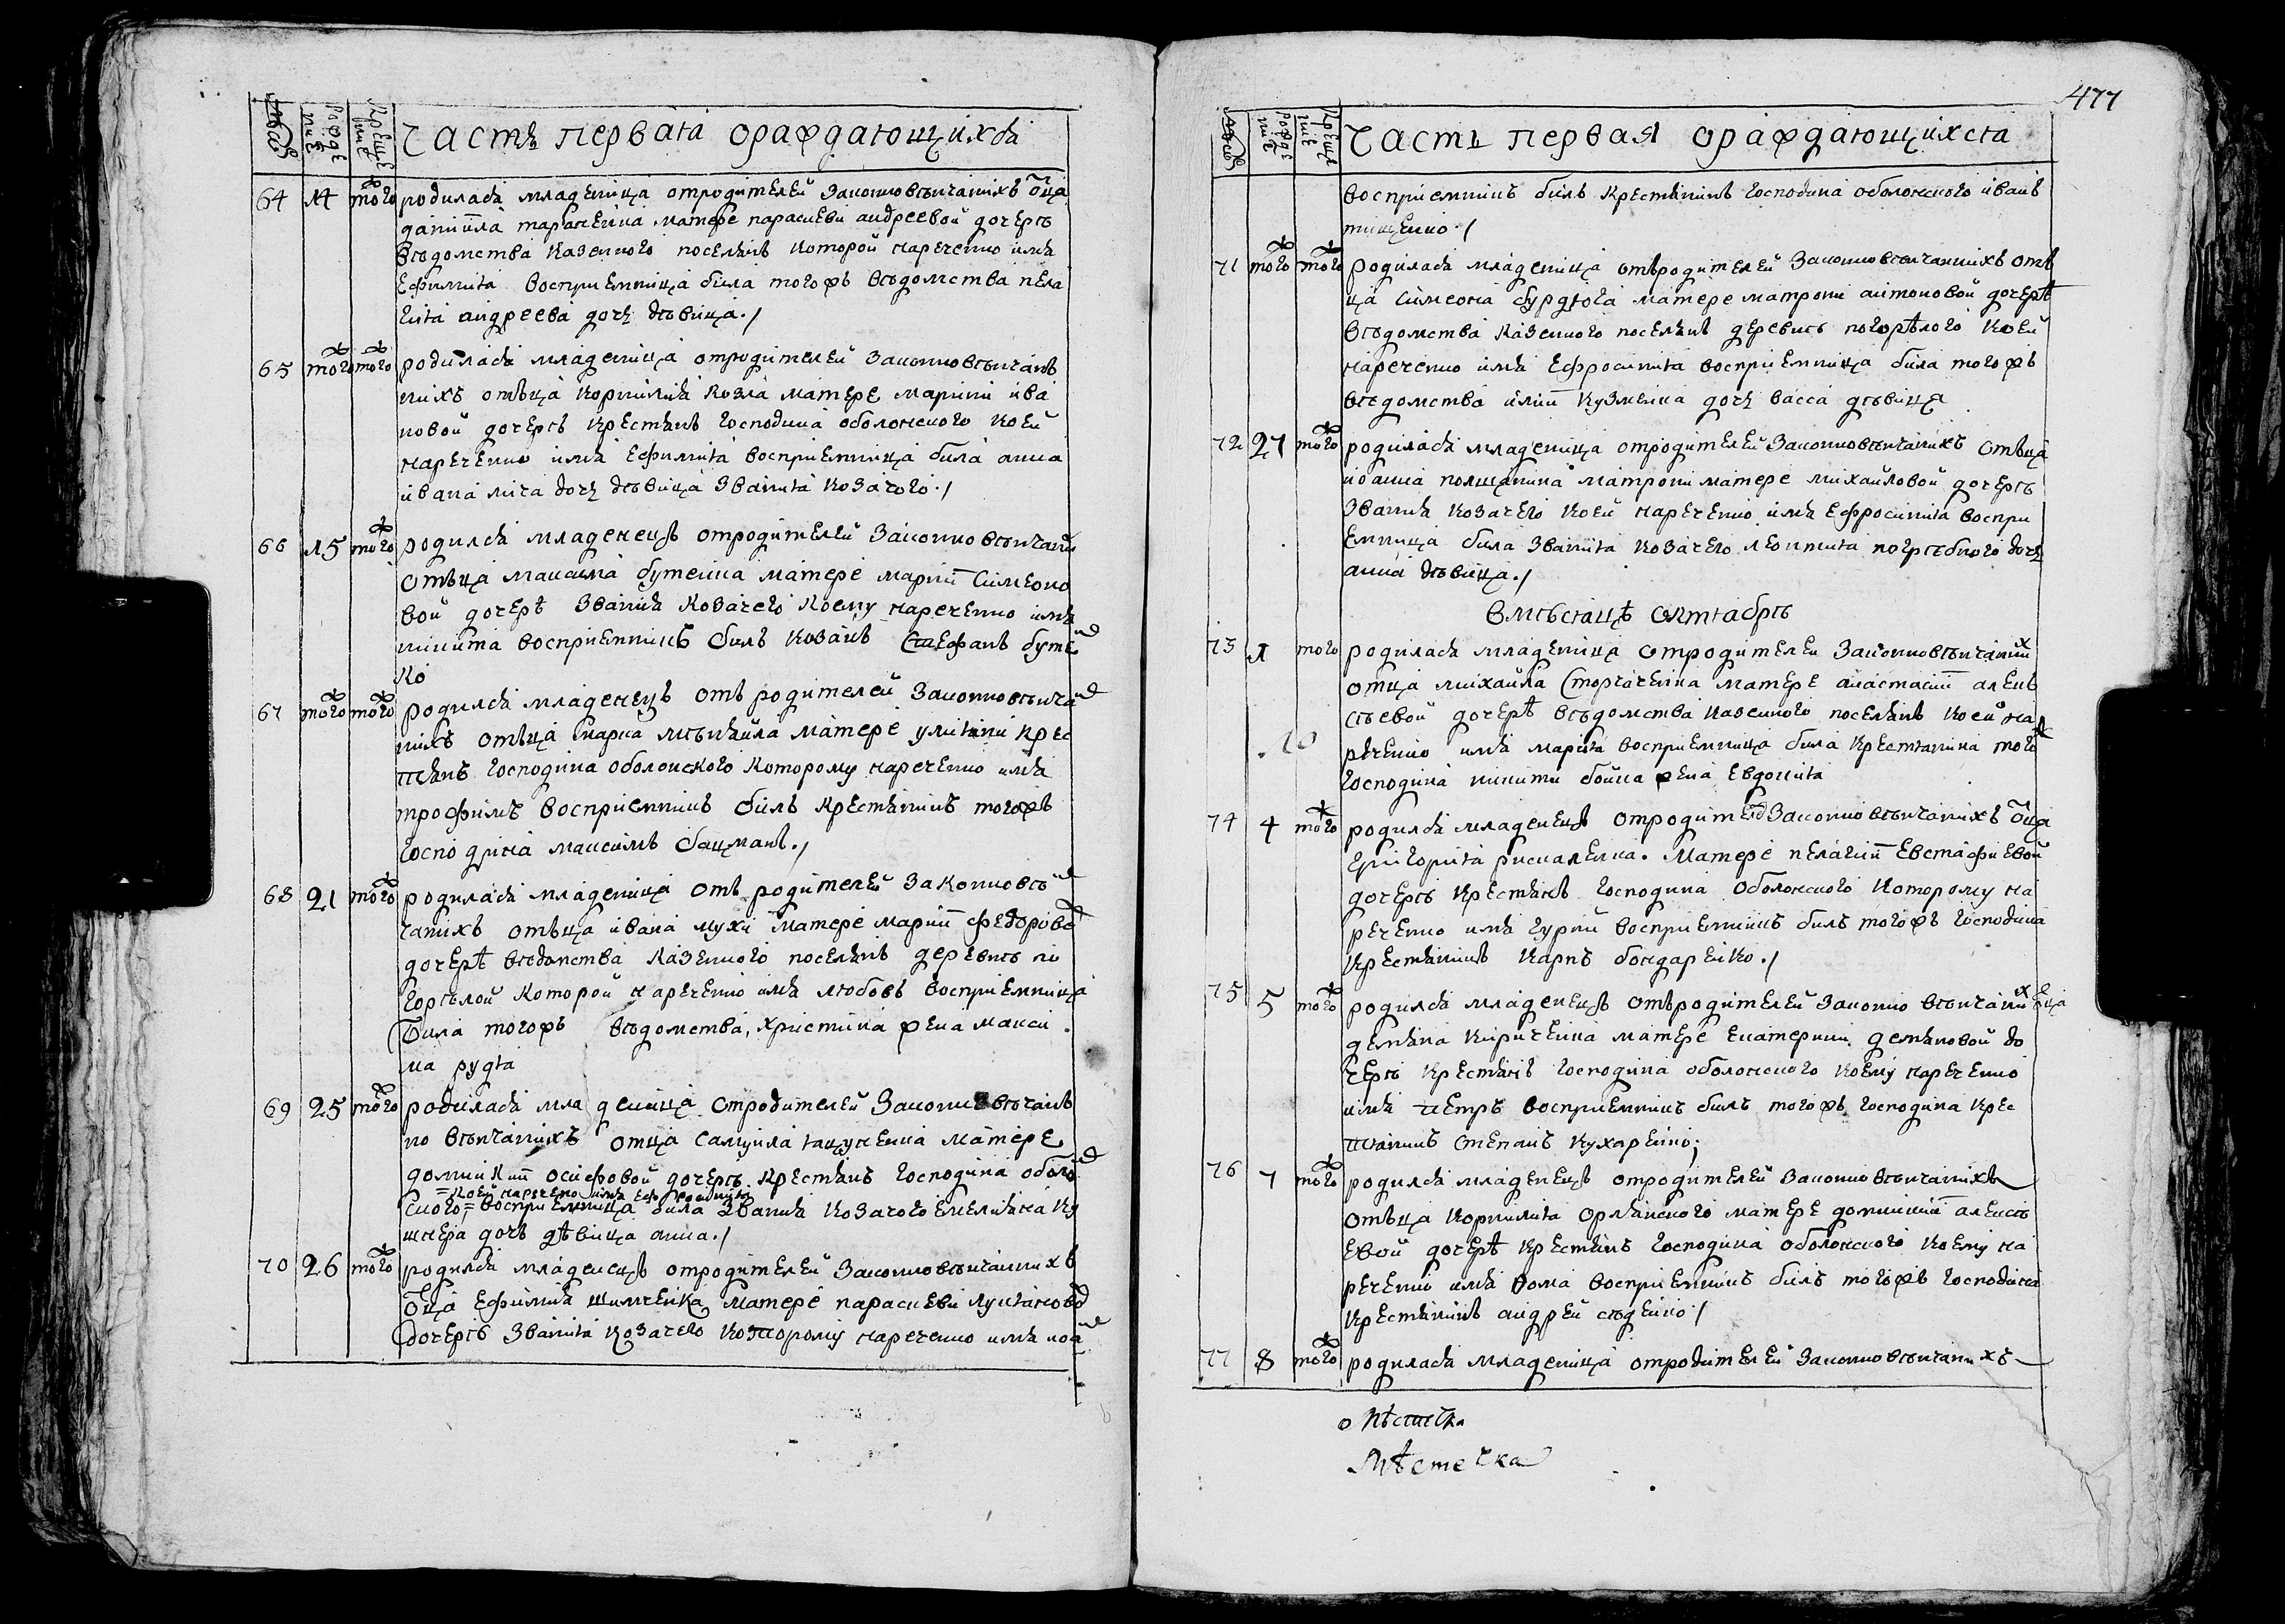 число
рождение
крещение
Часть первая о раждающихся
64 14 тогож родилася младеница от родителей законновѣнчанихъ отца
даниила тараненка матере параскеви андреевой дочерѣ
вѣдомства казенного поселянъ которой наречено имя
Ефимия восприемница била того жъ вѣдомства пела
гия андреева дочь дѣвица./
65 тогож тогож родилася младеница от родителей законновѣнчан
нихъ отъца корнилия козла матере марини ива
новой дочерѣ крестянъ господина оболонского коей
наречено имя Ефимия восприемница била анна
ивана дочь дѣвица звания козачого./
66 15 тогож родился младенецъ от родителей законновѣнчани
отъца максима бутенка матере марии симеоно
вой дочерѣ звания козачего коему наречено имя
никита восприемникъ билъ козакъ стефанъ бутен
ко
67 тогож тогож родился младенецъ отъ родителей законновѣнча
нихъ отъца марка матере улияни крес
тянъ господина оболонского которому наречено имя
трофимъ восприемникъ билъ крестянинъ тогожъ
господина максимъ бацманъ./
68 21 тогож родилася младеница отъ родителей законновѣн
чанихъ отъца ивана мухи матере марии федоровой
дочерѣ вѣдомства казенного поселянъ деревнѣ по
горѣлой которой наречено имя любовь восприемница
била тогожъ вѣдомства, христина жена макси
ма рудя
69 25 тогож родилася младеница от родителей законновѣнчан
но вѣнчанихъ отца самуила матере
домникии осифовой дочерѣ крестянъ господина оболон
=коей наречено имя ефросиния
ского= восприемница била звания козачого емелияна ку
шнера дочь дѣвица анна./
70 26 тогож родился младенецъ от родителей законновѣнчаннихъ
отца Ефимия шимченка матере параскеви лукияновой
дочерѣ звания козачего которому наречено имя иоан
477
число
рождение
крещение
Часть первая о раждающихся
восприемникъ билъ крестянинъ господина оболонского иванъ
тищенко./
71 тогож тогож родилася младеница отъ родителей законновѣнчаннихъ отъ
ца симеона бурдюга матере матрони антоновой дочерѣ
вѣдомства казенного поселянъ деревнѣ погорѣлого коей
наречено имя Ефросиния восприемница била тогожъ
вѣдомства кузмена дочь васса дѣвица
72 27 тогож родилася младеница от родителей законновѣнчанихъ отъца
иоанна матрони матере михайловой дочерѣ
звания козачего коей наречено имя ефросиния воспри
емница била звания козачего леонтия погрѣбного дочь
анна дѣвица./
въ мѣсяцѣ октябрѣ
73 1 того родилася младеница от родителей законновѣнчанних
отца михайла сторчаченка матере анастасии алекъ
сѣевой дочерѣ вѣдомства казенного поселянъ коей на
речено имя мария восприемница била крестянина тогож
господина никити бойка жена Евдокия
74 4 тогож родился младенецъ от родителей законновѣнчанихъ отца
григория рискаленка. матере пелагии Евстафиевой
дочерѣ крестянъ господина оболонского которому на
речено имя гурий восприемникъ билъ тогожъ господина
крестянинъ карпъ бондаренко./
75 5 тогож родился младенецъ отъ родителей законновѣнчаних отца
демяна кириченка матере екатерини демяновой до
черѣ крестянъ господина оболонского коему наречено
имя петръ восприемникъ билъ тогожъ господина крес
тянинъ степанъ кухаренко;
76 7 тогож родился младенецъ от родителей законновѣнчанихъ
отъца корнилия орлянского матере домникии алексѣ
евой дочерѣ крестянъ господина оболонского коему на
речено имя фома восприемникъ билъ тогожъ господина
крестянинъ андрей сѣденко./
77 8 тогож родилася младеница от родителей законновѣнчанихъ
Мѣстечка